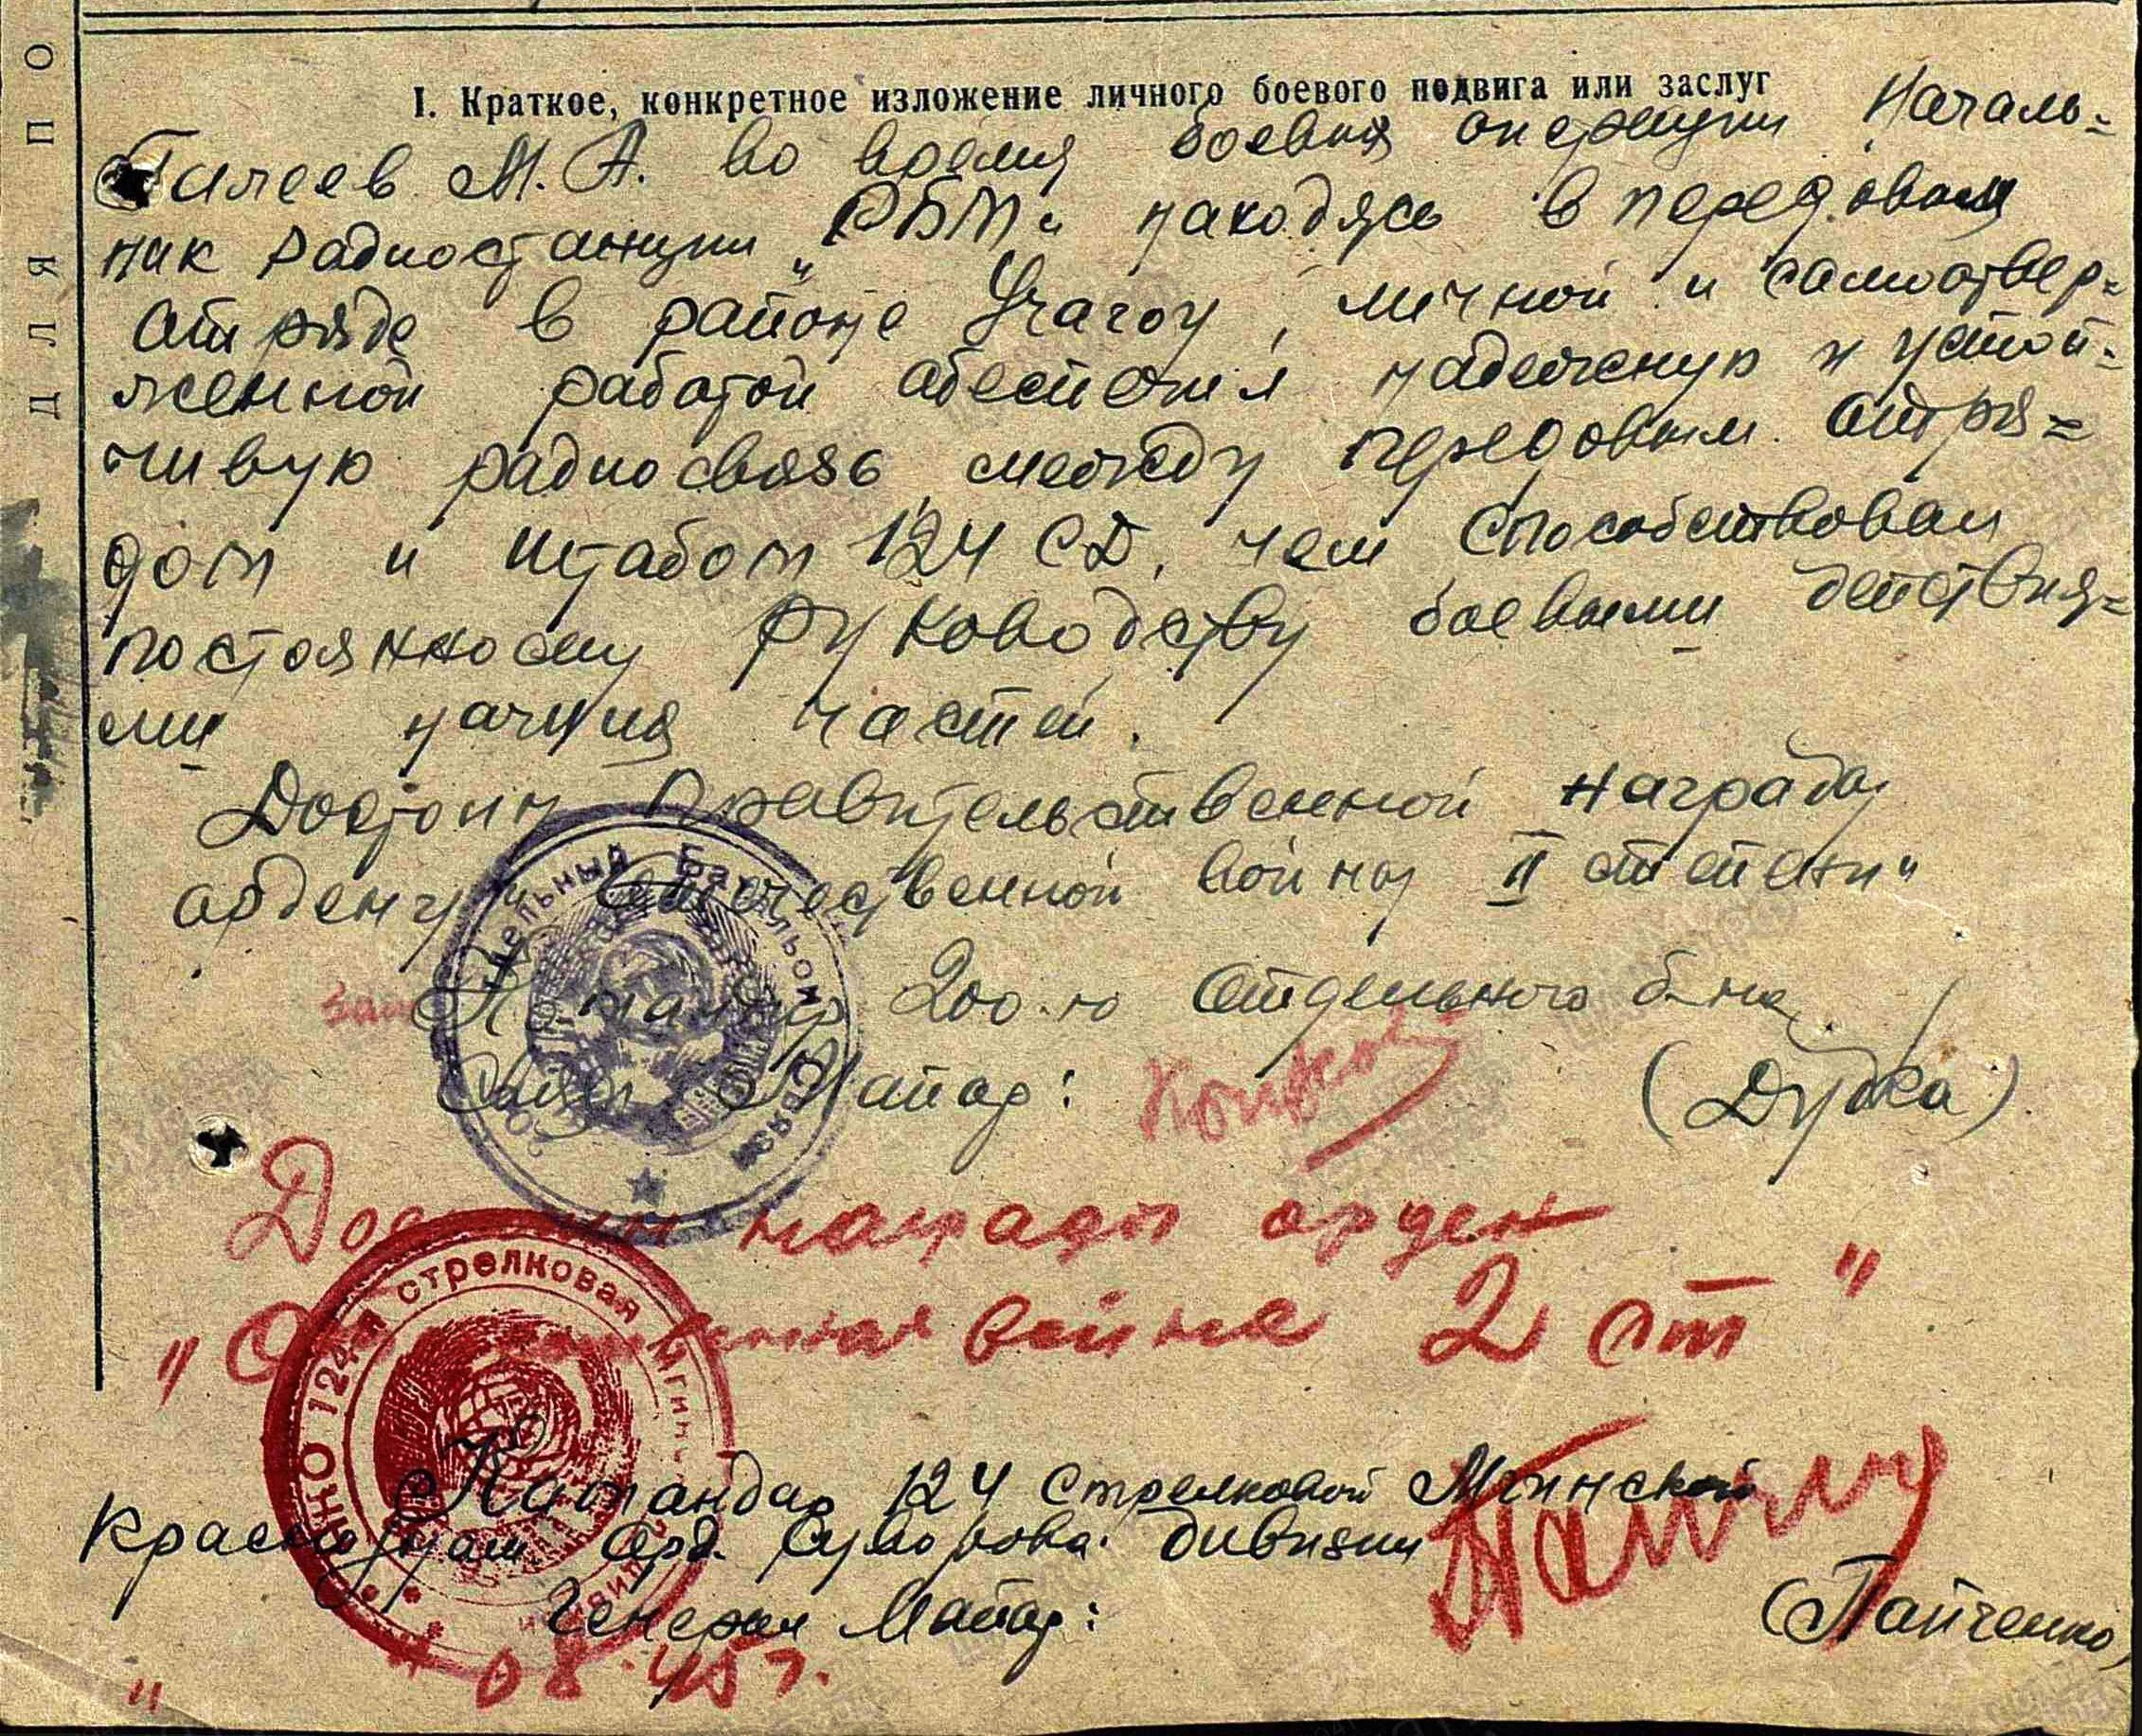 ДЛЯ ПО
I. Краткое, конкретное изложение личного боевого подвига или заслуг
Галеев М. А. во время боевых операции Началь=
ник радиостанции „РБМ" находясь в передовом
отряде в районе Учагоу, личной и самоотвер=
женной работой обеспечил надежную и устой=
чивую радиосвязь между передовым отря=
дом и штабом 124 СД, чем способствовал
постоянному руководству боевыми действия=
ми наших частей.
Достоин правительственной награды
ордену „Отечественной войны II степени"
Зам
К 200-го Отдельного б-на
Связи Майор: (Дудка)
Достоин награды орден
"Отечественная война 2 ст"
Отдельный Батальон Связи
НКО 124-я стрелковая Мгинская
Командир 124 Стрелковой Мгинской
Краснознам. Орд. Суворова дивизии
Генерал Майор: (Папченко)
" " 08.45 г.